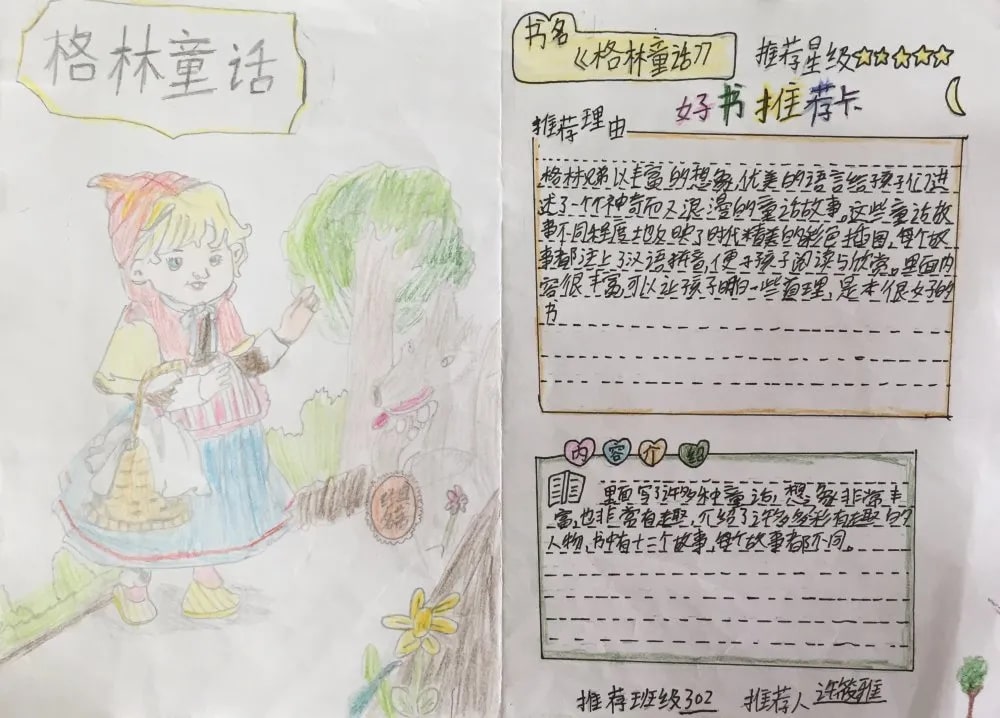 格林童话
书名
《格林童话》
推荐星级
好书推荐卡
推荐理由
格林兄弟以丰富的想象,优美的语言给孩子们讲
述了一个个神奇而又浪漫的童话故事。这些童话故
事不同程度地反映了时代精美的彩色插图,每个故
事都注上了汉语拼音,便于孩子阅读与欣赏。里面内
容很丰富可以让孩子明白一些道理,是本很好的
书
内容介绍
里面写了许多种童话,想象非常丰
富,也非常有趣,介绍了许多多彩有趣的
人物,书中有十三个故事,每个故事都不同。
推荐班级302
推荐人